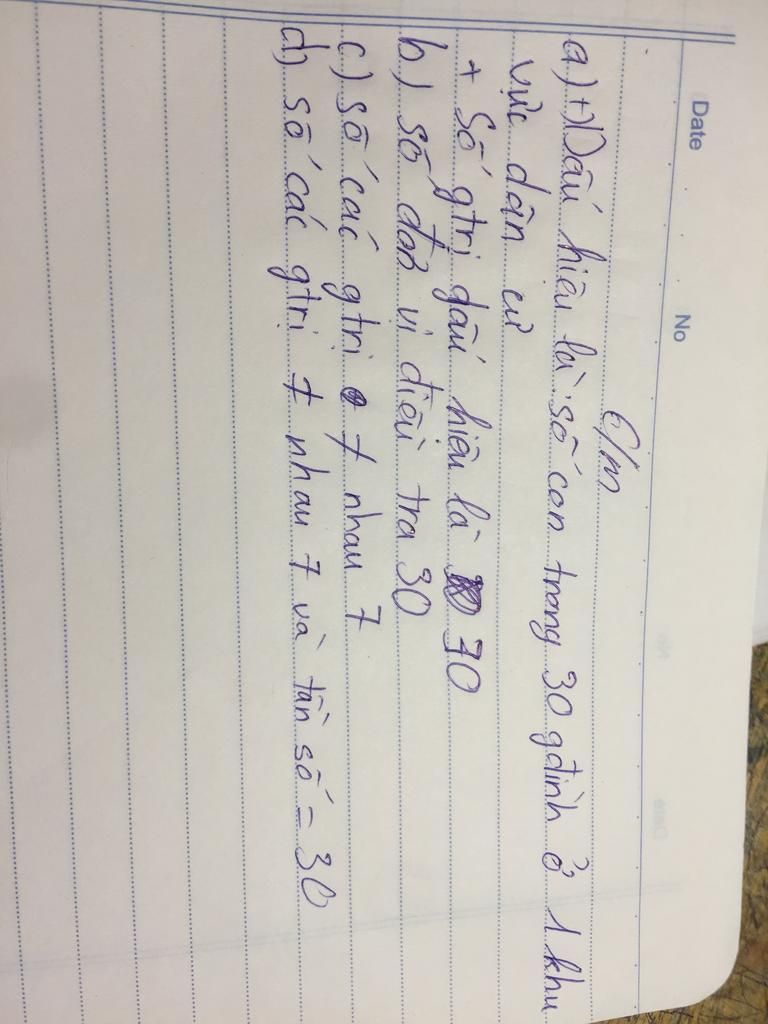 Date No
6/m
a) +) Dấu hiệu là: số con trong 30 gđình ở 1 khu
vực dân cư
+ Số gtrị dấu hiệu là 70
b) số đơn vị điều tra 30
c) số các gtrị ≠ nhau 7
d) số các gtrị ≠ nhau 7 và tần số = 30